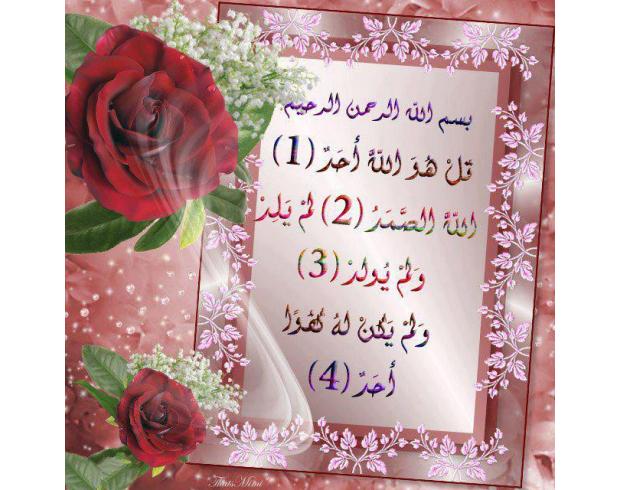 بسم الله الرحمن الرحيم
قلْ هُوَ اللَّهُ أَحَدٌ (1)
اللَّهُ الصَّمَدُ (2) لمْ يَلِدْ
وَلمْ يُولدْ (3)
وَلمْ يَكنْ لهُ كفُوًا
أَحَدٌ (4)
ThatsMimi